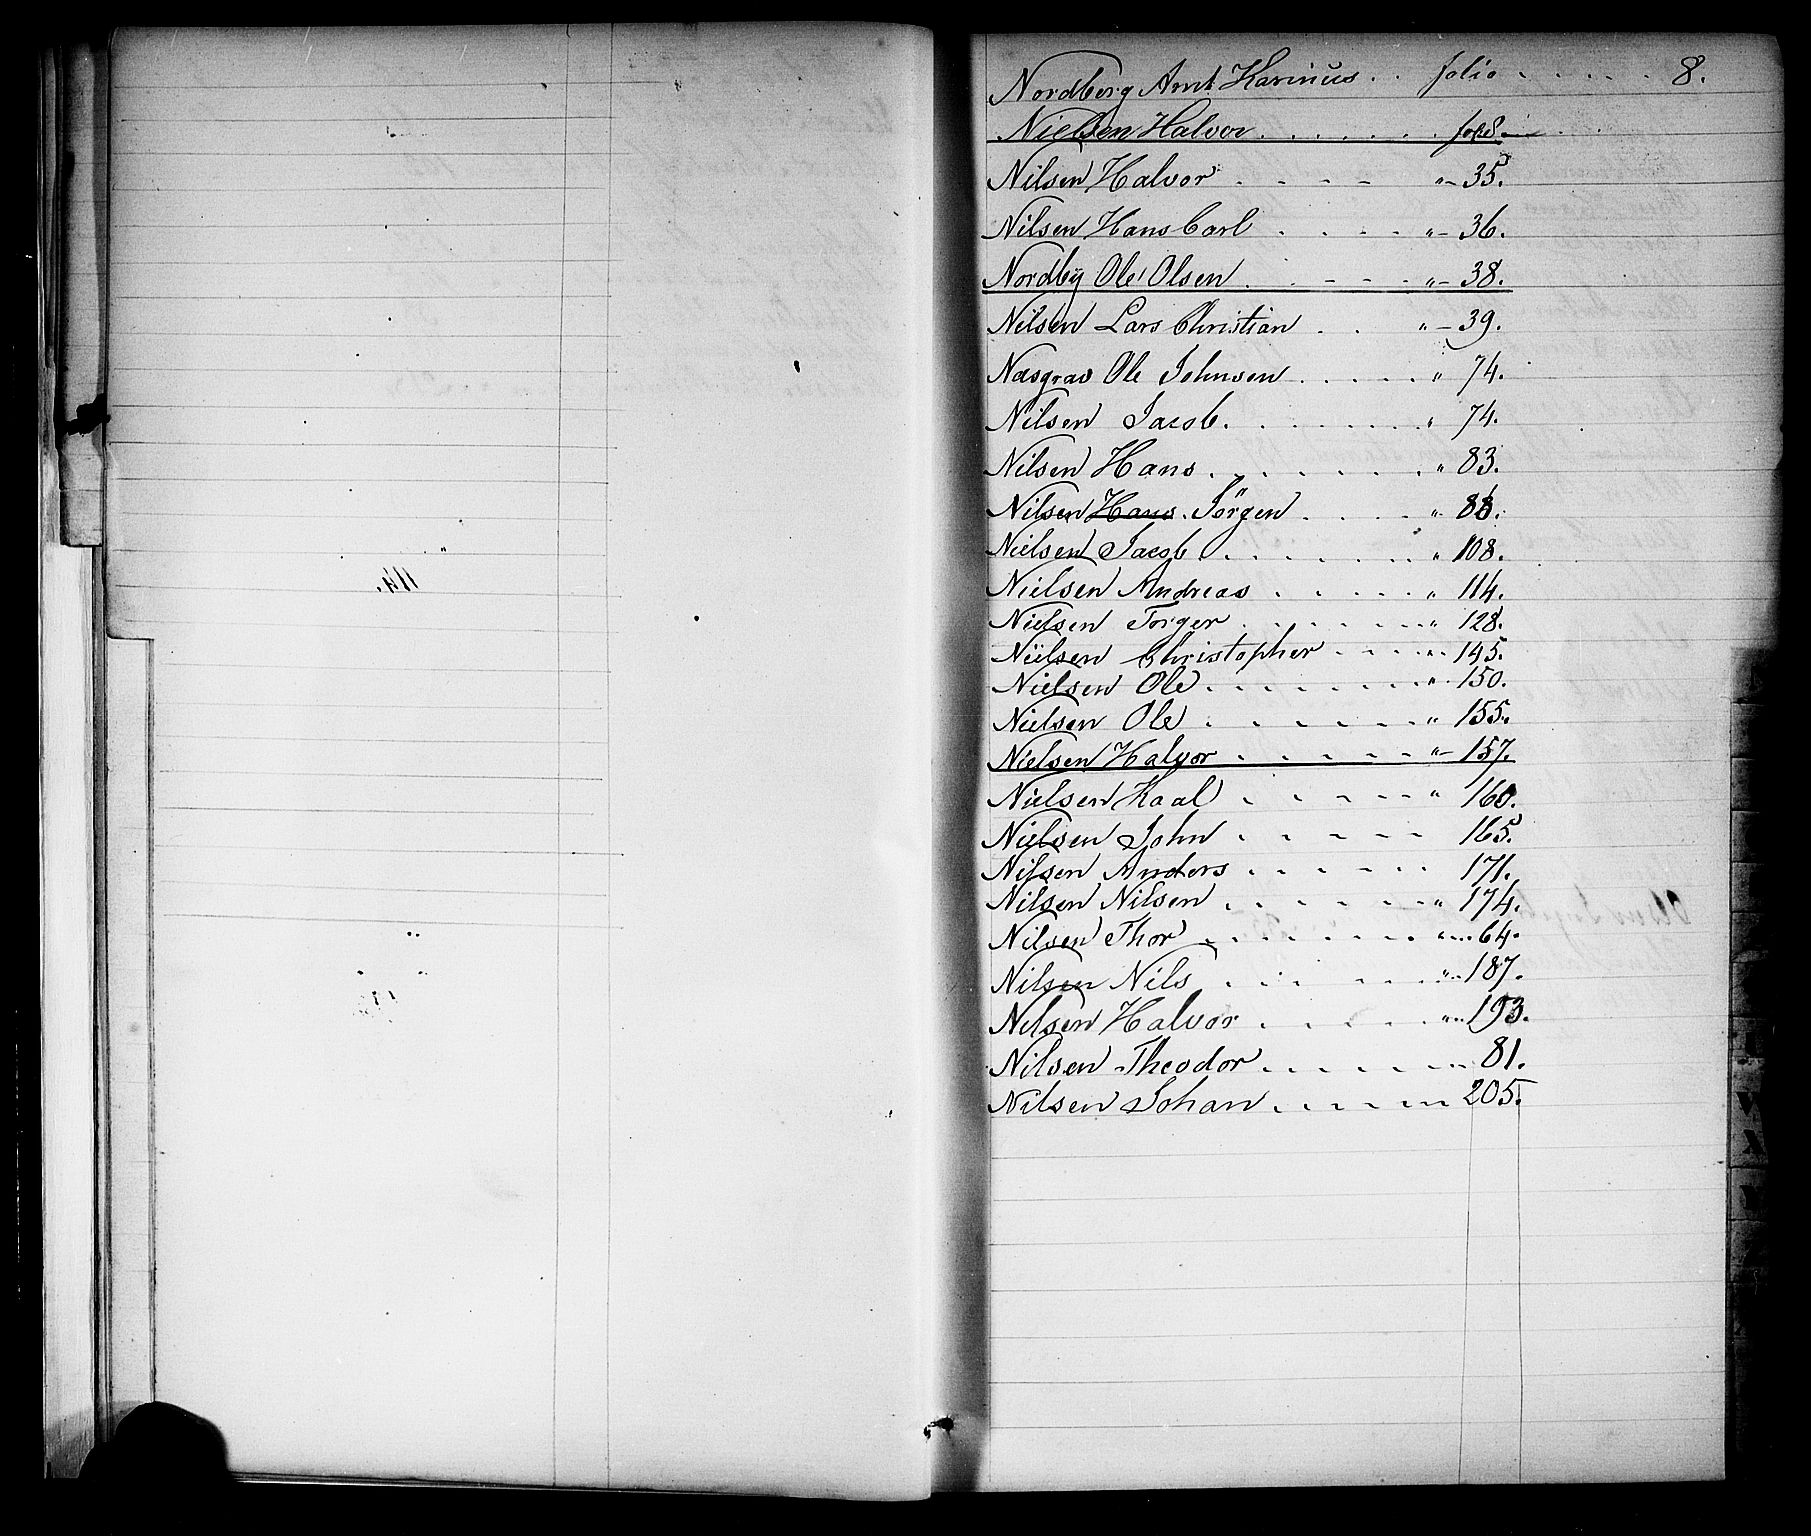 Nordberg Arnt Karinus . . folio . . . . . 8.
Nielsen Halvor . . . . . . . fol. 8.
Nilsen Halvor . . . . "- 35.
Nilsen Hans Carl . . . . "- 36.
Nordby Ole Olsen . . . . . "- 38.
Nilsen Lars Christian . . "- 39.
Næsgras Ole Johnsen . . . . . " 74.
Nilsen Jacob . . . . . . . " 74.
Nilsen Hans . . . . . . . " 83.
Nilsen Hans. Jörgen . . . . " 86.
Nielsen Jacob . . . . . . " 108.
Nielsen Andreas . . . . . " 114.
Nielsen Torger . . . . . . " 128.
Nielsen Christopher . . . . " 145.
Nielsen Ole . . . . . . . " 150.
Nielsen Ole . . . . . . " 155.
Nielsen Halvor . . . . . "- 157.
Nielsen Kaal . . . . . " 160.
Nielsen John . . . . . 165.
Nilsen Anders . . . . . 171.
Nilsen Nilsen . . . . . . " 174.
Nilsen Thor . . . . . . " 64.
Nilsen Nils . . . . . " 187.
Nilsen Halvor . . . . . " 193.
Nilsen Theodor . . . . . . 81.
Nilsen Johan . . . . . . 205.